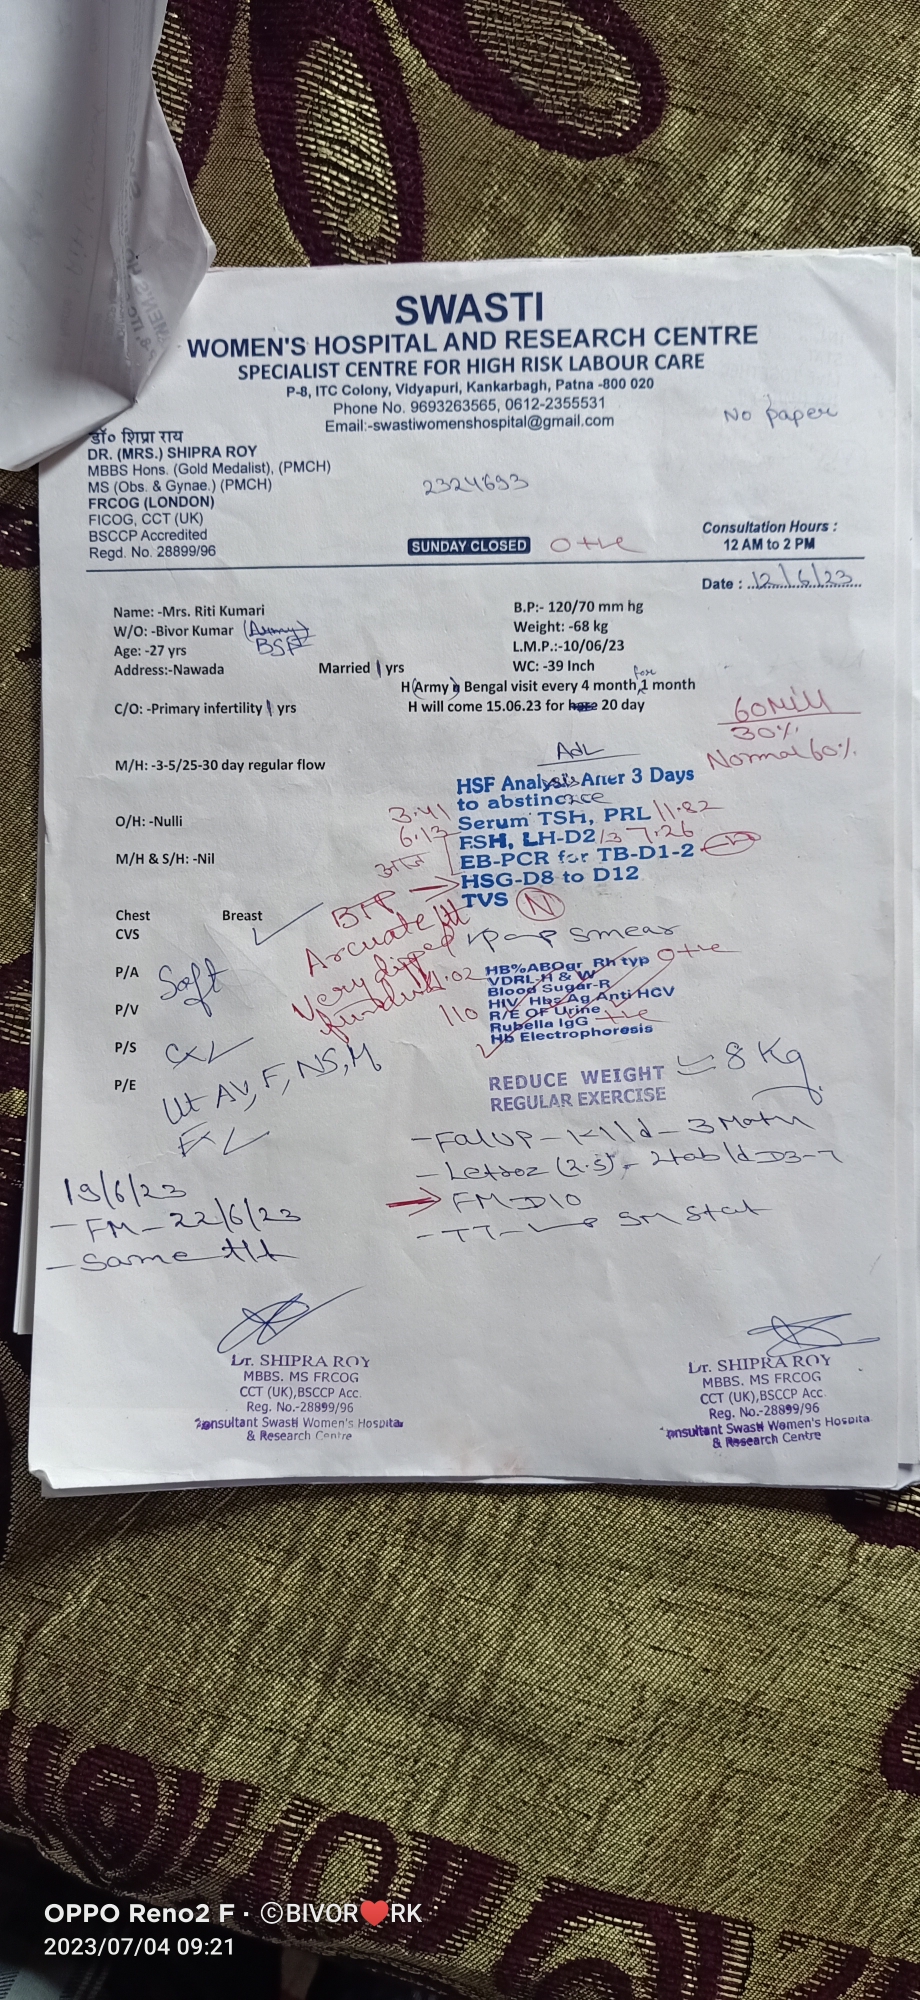 SWASTI
WOMEN'S HOSPITAL AND RESEARCH CENTRE
SPECIALIST CENTRE FOR HIGH RISK LABOUR CARE
P-8, ITC Colony, Vidyapuri, Kankarbagh, Patna -800 020
Phone No. 9693263565, 0612-2355531
Email:-swastiwomenshospital@gmail.com
No paper
डॉ० शिप्रा राय
DR. (MRS.) SHIPRA ROY
MBBS Hons. (Gold Medalist), (PMCH)
MS (Obs. & Gynae.) (PMCH)
FRCOG (LONDON)
FICOG, CCT (UK)
BSCCP Accredited
Regd. No. 28899/96
2324693
SUNDAY CLOSED O+ve
Consultation Hours :
12 AM to 2 PM
Date : 12/6/23
Name: -Mrs. Riti Kumari
W/O: -Bivor Kumar (Army)
BSF
Age: -27 yrs
Address:-Nawada
Married 1 yrs
B.P:- 120/70 mm hg
Weight: -68 kg
L.M.P:-10/06/23
WC: -39 Inch
for
H(Army) Bengal visit every 4 month, 1 month
C/O: -Primary infertility 1 yrs
H will come 15.06.23 for 20 day
60Mill
30%
Normal 60%
M/H: -3-5/25-30 day regular flow
O/H: -Nulli
M/H & S/H: -Nil
Adv
HSF Analysis After 3 Days
to abstinence
3.41 Serum TSH, PRL 11.82
6.13 FSH, LH-D2/3 7.26
EB-PCR for TB-D1-2 -ve
HSG-D8 to D12
TVS N
BTP
Arcuate Ut
Very dipped
fundus
Pap smear
Chest
Breast
CVS
P/A Soft
P/V
P/S Cx
P/E
Ut AV, F, NS, M
Fx
HB%ABOgr Rh typ O+ve
VDRL-H & W
Blood Sugar-R
HIV Hbs Ag Anti HCV
110 R/E OF Urine
Rubella IgG +ve
Hb Electrophoresis
REDUCE WEIGHT 8 Kg
REGULAR EXERCISE
- Folup - 1/d - 3 Month
- Letroz (2.5) - 2tab/d D3-7
FM D10
- TT - Stat
19/6/23
- FM - 22/6/23
- Same ttt
Dr. SHIPRA ROY
MBBS. MS FRCOG
CCT (UK),BSCCP Acc.
Reg. No.-28899/96
Consultant Swasti Women's Hospital
& Research Centre
Dr. SHIPRA ROY
MBBS. MS FRCOG
CCT (UK),BSCCP Acc.
Reg. No.-28899/96
Consultant Swasti Women's Hospital
& Research Centre
OPPO Reno2 F · ©BIVOR❤️RK
2023/07/04 09:21